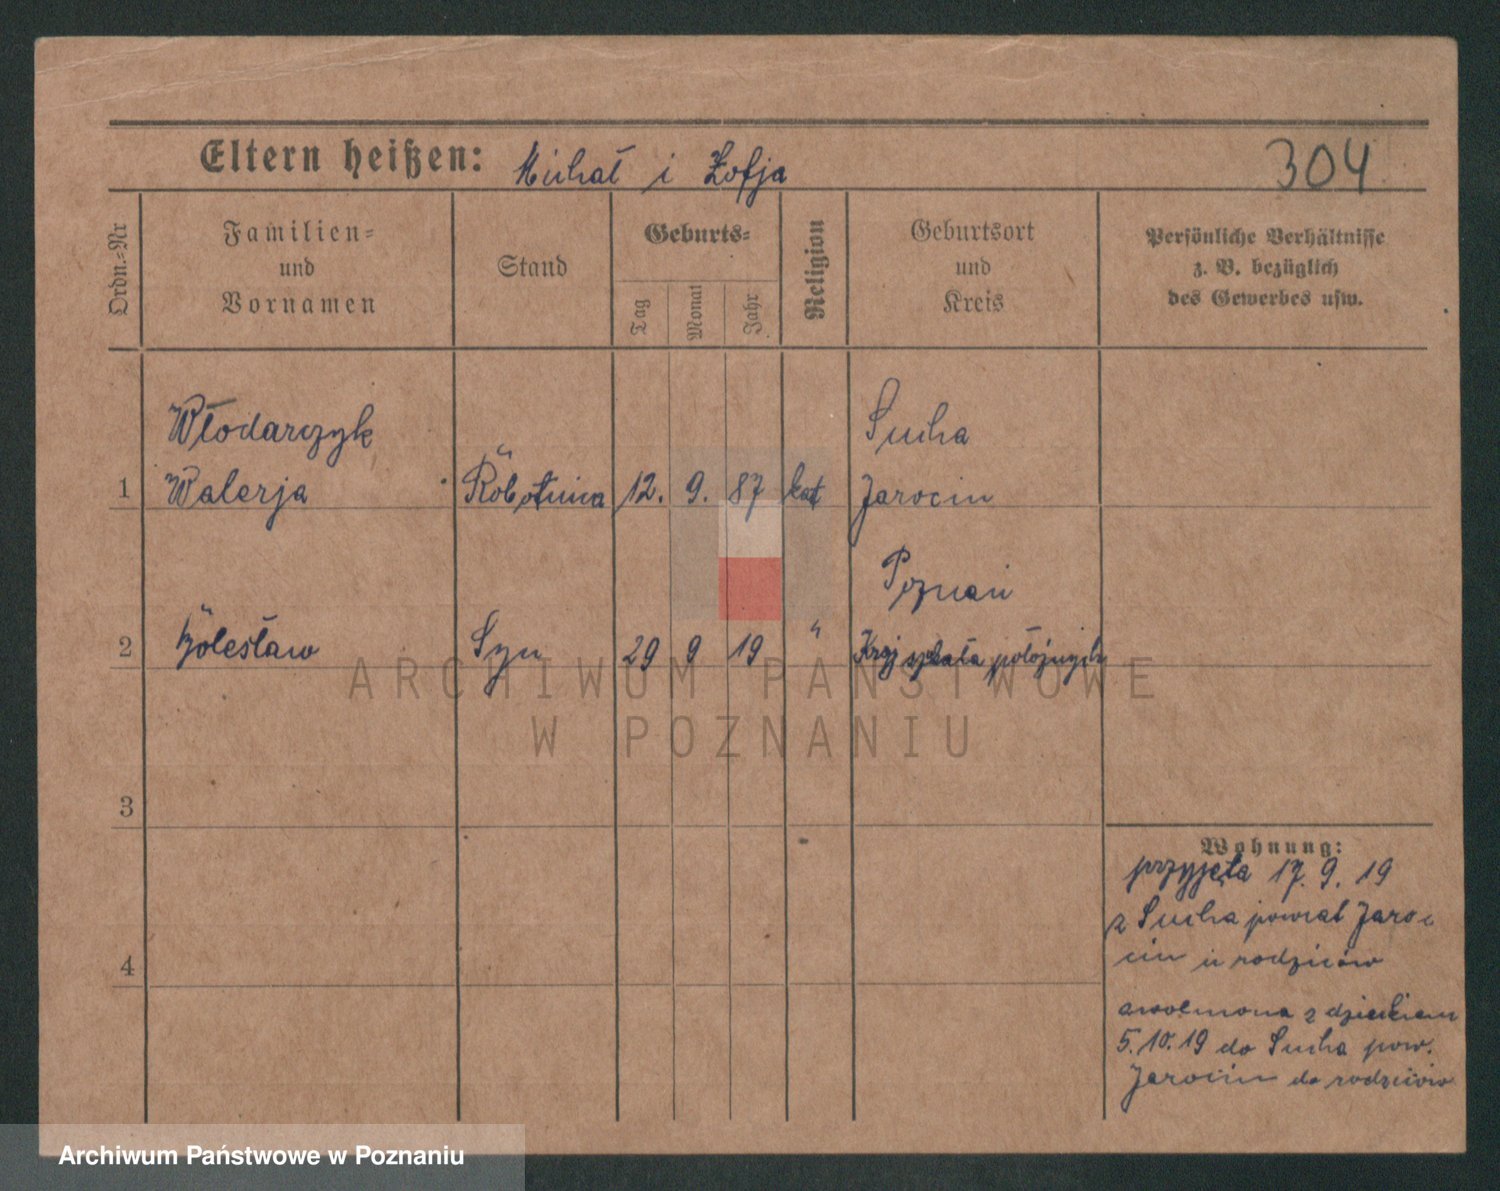 Eltern heißen: Michał i Zofja
304
Ordn.=Nr
Familien=
und
Vornamen
Stand
Geburts=
Tag
Monat
Jahr
Religion
Geburtsort
und
Kreis
Persönliche Verhältnisse
z. B. bezüglich
des Gewerbes usw.
Włodarczyk
Sucha
1 Walerja Robotnica 12. 9. 87 kat Jarocin
Poznań
2 Bolesław Syn 29 9 19 " położnych
3
4
Wohnung:
przyjęta 17. 9. 19
z Sucha powiat Jaro-
cin u rodziców
z dzieckiem
5.10.19 do Sucha pow.
Jarocin do rodziców
ARCHIWUM PAŃSTWOWE
W POZNANIU
Archiwum Państwowe w Poznaniu